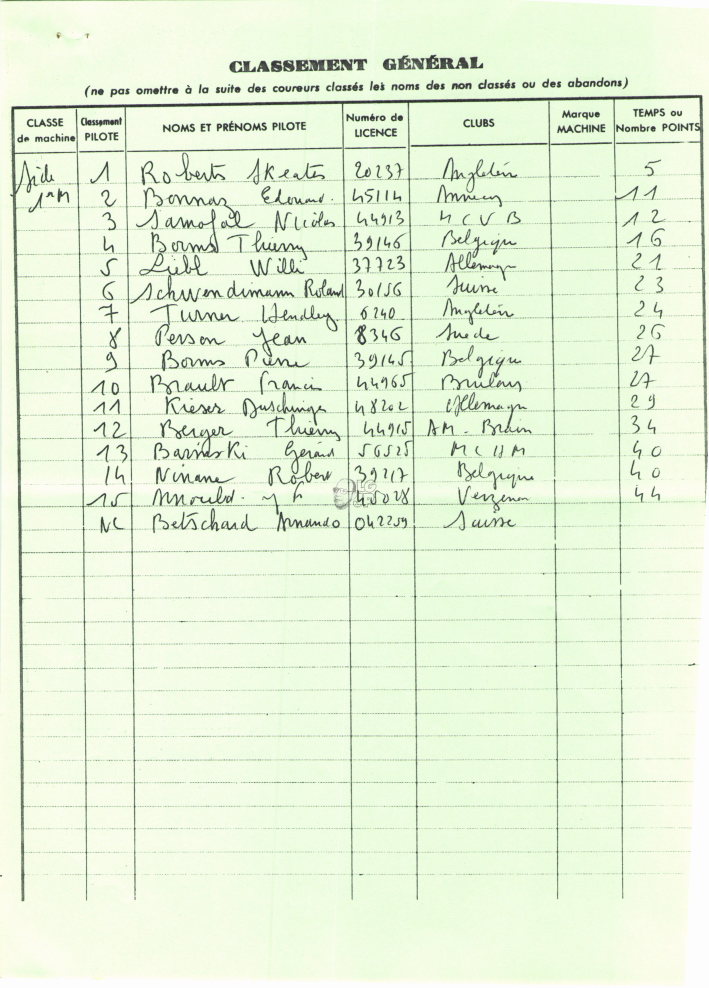 CLASSEMENT GÉNÉRAL
(ne pas omettre à la suite des coureurs classés les noms des non classés ou des abandons)
CLASSE de machine Classement PILOTE NOMS ET PRÉNOMS PILOTE Numéro de LICENCE CLUBS Marque MACHINE TEMPS ou Nombre POINTS
Side 1 Roberts Skeates 20237 Angleterre 5
2 Bonnaz Edouard 45114 Annecy 11
3 Samofal Nicolas 44913 MCVB 12
4 Borms Thierry 39146 Belgique 16
5 Liebl Willi 37723 Allemagne 21
6 Schwendimann Roland 30156 Suisse 23
7 Turner Hendley 6240 Angleterre 24
8 Person Jean 8346 Suede 26
9 Borms Pierre 39145 Belgique 27
10 Brault Francis 44965 27
11 Kieser 48202 Allemagne 29
12 Berger Thierry 44915 AM. 34
13 Barinski Gérard 56525 MCHM 40
14 Ninane Robert 39217 Belgique 40
15 Arnould 45028 Verzenay 44
NC Betschard Armando 042259 Suisse